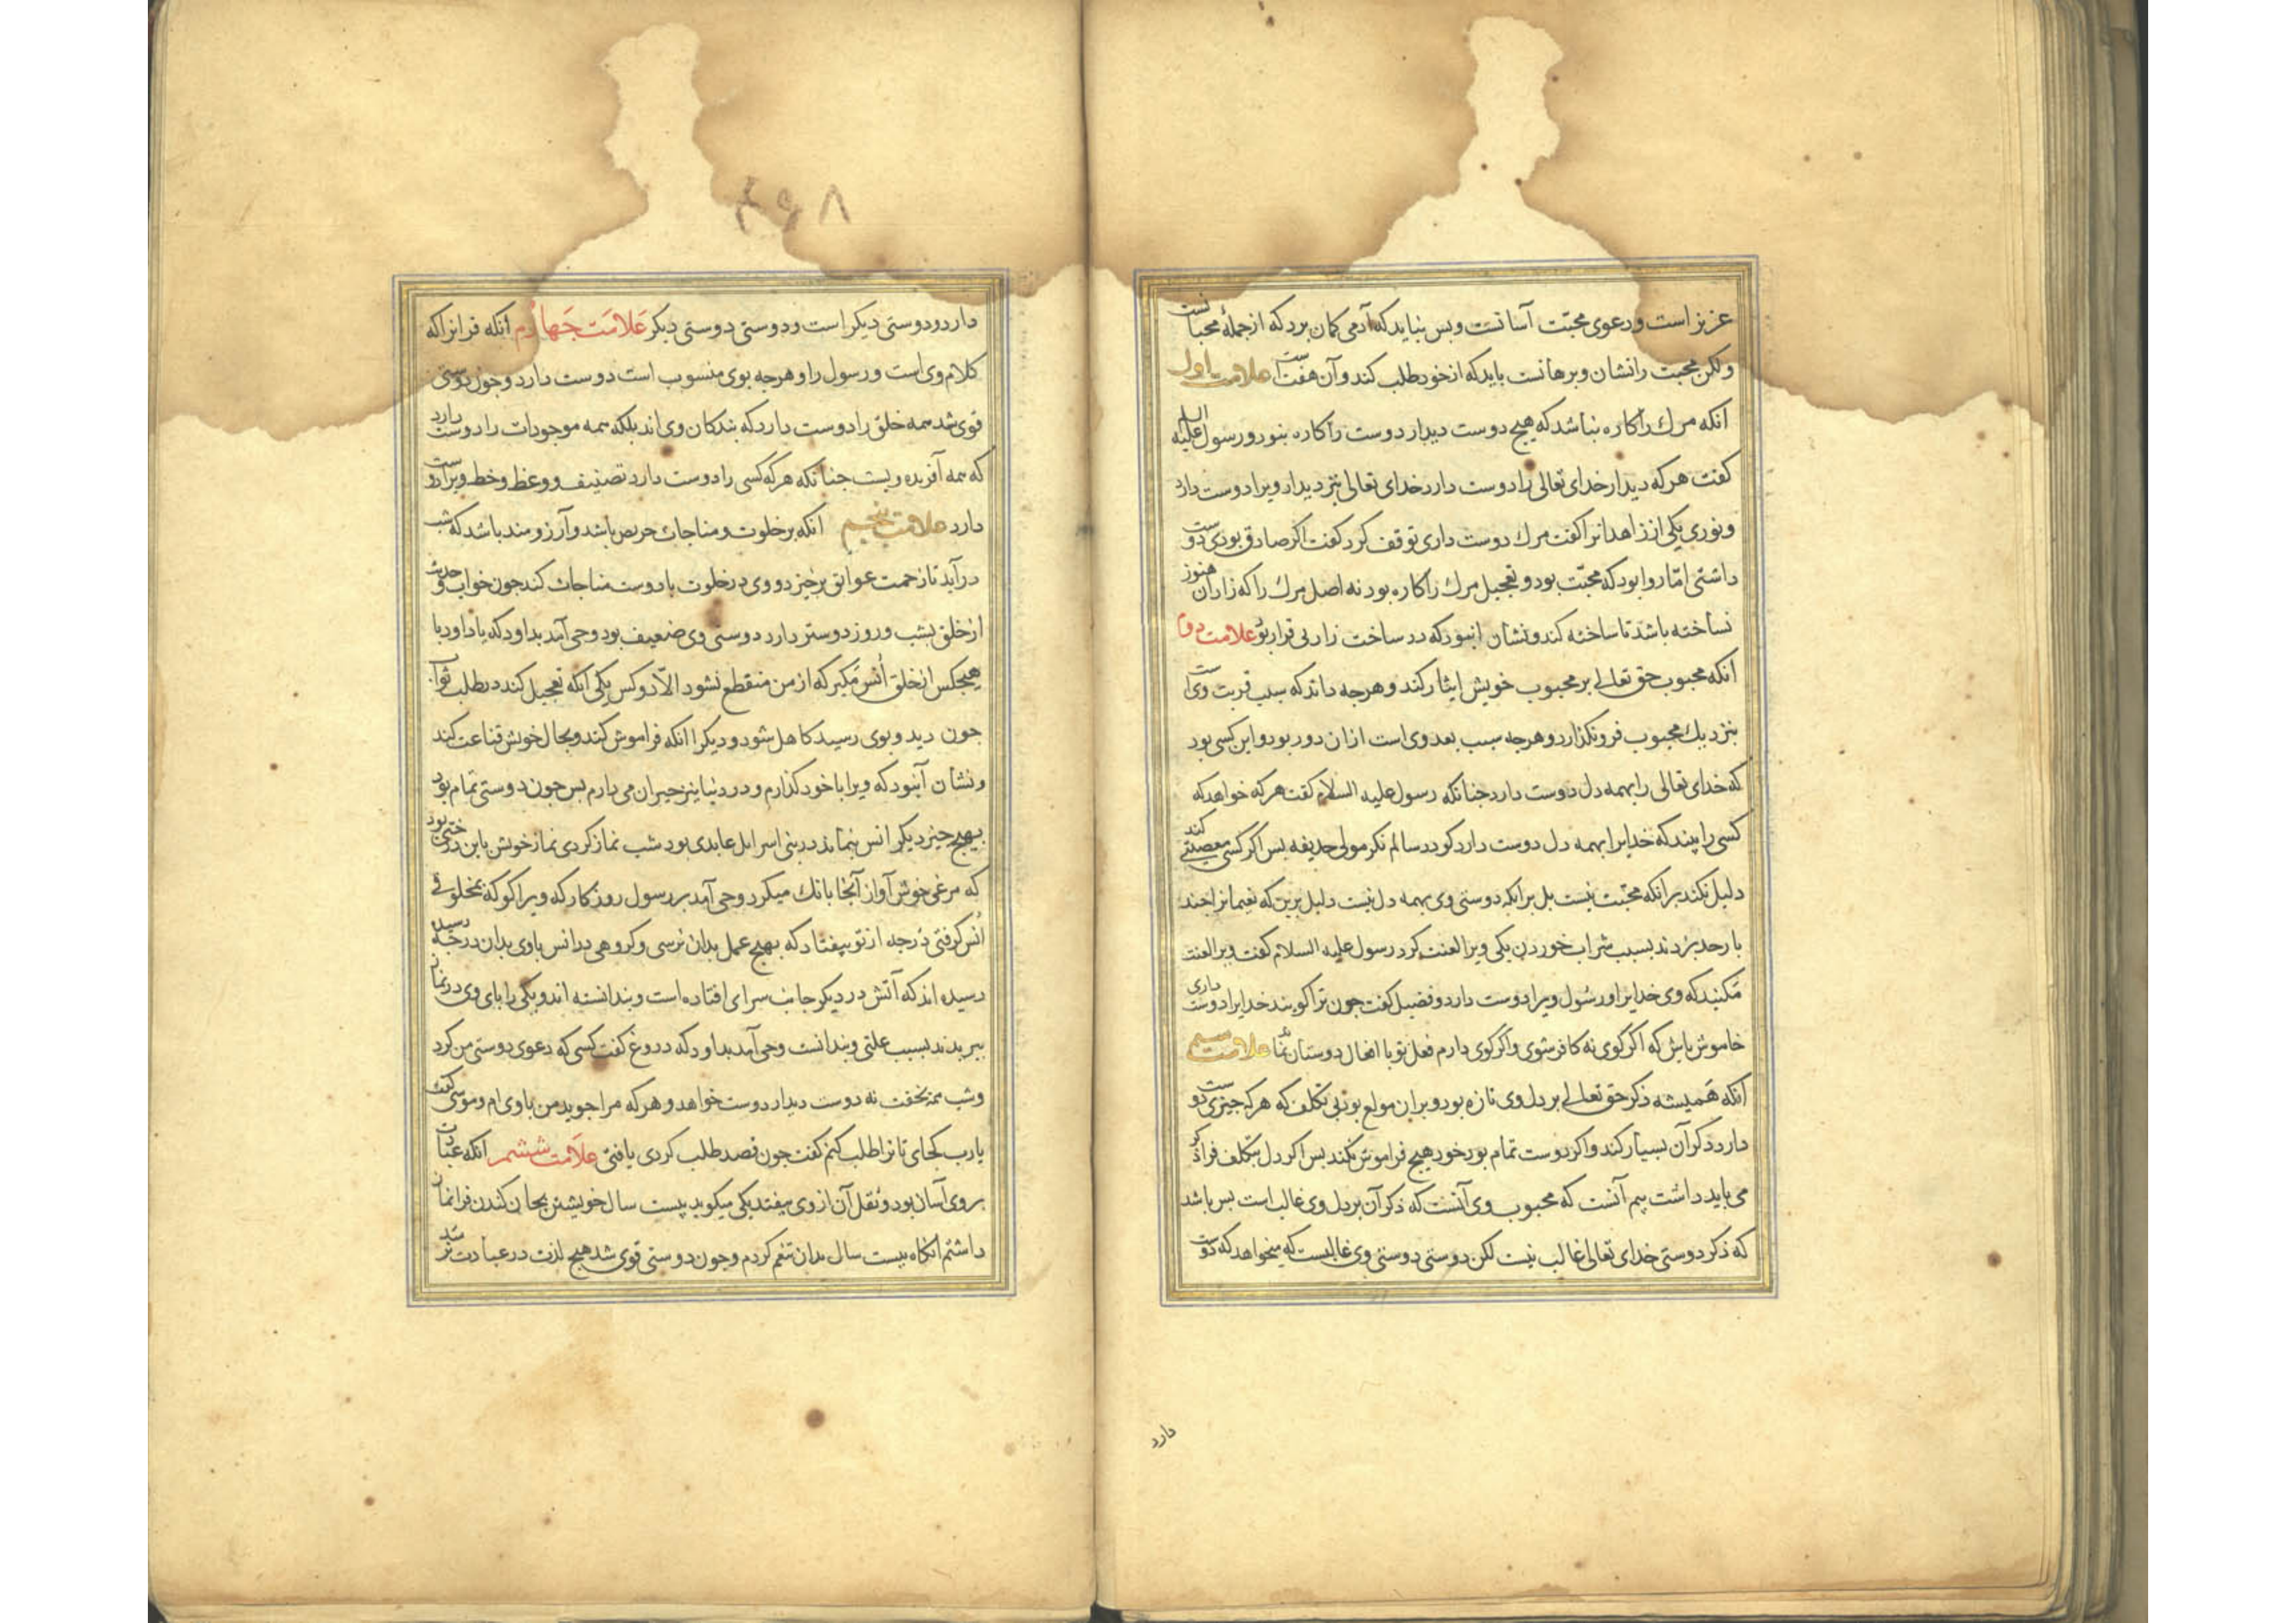 عزیز است و دعوی محبّت آسانست و بس نباید که آدمی کمان برد که از جملهٔ محبانست
ولکن محبت را نشان و برهانست باید که از خود طلب کند و آن هفت است علامت اول
انکه مرك را کاره نباشد که هیچ دوست دیدار دوست را کاره نبود و رسول علیه السلم
کفت هر که دیدار خدای تعالی را دوست دارد خدای تعالی نیز دیدار ویرا دوست دارد
و بوری یکی از زاهدانرا کفت مرك دوست داری توقف کرد کفت اکر صادق بودی دوست
داشتی امّا روا بود که محبّت بود و تعجیل مرك را کاره بود نه اصل مرك را که زاد آن هنوز
نساخته باشد تا ساخته کند و نشان انبود که در ساخت زاد بی قرار بود علامت دوم
انکه محبوب حق تعالی بر محبوب خویش ایثار کند و هرجه داند که سبب قربت وی است
بنزدیك محبوب فرو نکذارد و هرجه سبب بعد وی است از ان دور بود و این کسی بود
که خدای تعالی را بهمه دل دوست دارد جنانکه رسول علیه السلام کفت هر که خواهد که
کسی را بیند که خدایرا بهمه دل دوست دارد کو در سالم نکر مولی حذیفه بس اکر کسی معصیتی کند
دلیل نکند بر انکه محبّت نیست بل بر انکه دوستی وی بهمه دل نیست دلیل برین که نعیمانرا جند
بار حد بزدند بسبب شراب خوردن یکی ویرا لعنت کرد رسول علیه السلام کفت ویرا لعنت
مکنید که وی خدایرا و رسول ویرا دوست دارد و فضیل کفت جون ترا کویند خدایرا دوست داری
خاموش باش که اکر کوی نه کافر شوی و اکر کوی دارم فعل تو با افعال دوستان نماند علامت سیم
انکه همیشه ذکر حق تعالی بر دل وی تازه بود و بران مولع بود بی تکلف که هرکه جیزی دوست
دارد ذکر آن بسیار کند و اکر دوست تمام بود خود هیچ فراموش نکند بس اکر دل بتکلف فرا ذکر
می باید داشت بیم آنست که محبوب وی آنست که ذکر آن بر دل وی غالب است بس باشد
که ذکر دوستی خدای تعالی غالب نیست لکن دوستی دوستی وی غالبست که میخواهد که دوست
دارد
۴۹۸
دارد و دوستی دیکر است و دوستی دوستی دیکر علامت جهارم انکه قرانرا که
کلام وی است و رسول را و هرجه بوی منسوب است دوست دارد و جون دوستی
قوی شد همه خلق را دوست دارد که بندکان وی اند بلکه همه موجودات را دوست دارد
که همه آفریده ویست جنانکه هر که کسی را دوست دارد تصنیف و وعظ و خط ویرا دوست
دارد علامت پنجم انکه بر خلوت و مناجات حریص باشد و آرزومند باشد که شب
درآید تا زحمت عوایق برخیزد و وی در خلوت با دوست مناجات کند جون خواب و حدیث
از خلق بشب و روز دوستر دارد دوستی وی ضعیف بود وحی آمد بداود که یا داود با
هیجکس از خلق اُنس مکیر که از من منقطع نشود الّا دو کس یکی انکه تعجیل کند در طلب ثواب
جون دید و بوی رسید کاهل شود و دیکر انکه فراموش کند و بحال خویش قناعت کند
و نشان آنبود که ویرا با خود کذارم و در دنیا نیز حیران می دارم بس جون دوستی تمام بود
بهیج جیز دیکر انس نماند در بنی اسرایل عابدی بود شب نماز کردی نماز خویش با بن درختی بود
که مرغی خوش آواز آنجا بانك میکرد وحی آمد بر رسول روزکار که ویرا کو که بمخلوقی
اُنس کرفتی درجه از تو بیفتاد که بهیج عمل بدان نرسی و کروهی در انس باوی بدان درجه رسیده
رسیده اند که آتش در دیکر جانب سرای افتاده است و ندانسته اند و یکی را بای وی در نماز
ببریدند بسبب علتی و ندانست وحی آمد بداود که دروغ کفت کسی که دعوی دوستی من کرد
و شب همه بخفت نه دوست دیدار دوست خواهد و هر که مرا جوید من باوی ام و موسی کفت
یارب کجای تا ترا طلب کنم کفت جون قصد طلب کردی یافتی علامت ششم انکه عبادت
بر وی آسان بود و ثقل آن از وی بیفتد یکی میکوید بیست سال خویشتن بجان کندن فرا نماز
داشتم آنکاه بیست سال بدان تنعم کردم و جون دوستی قوی شد هیچ لذت در عبادت نرسد